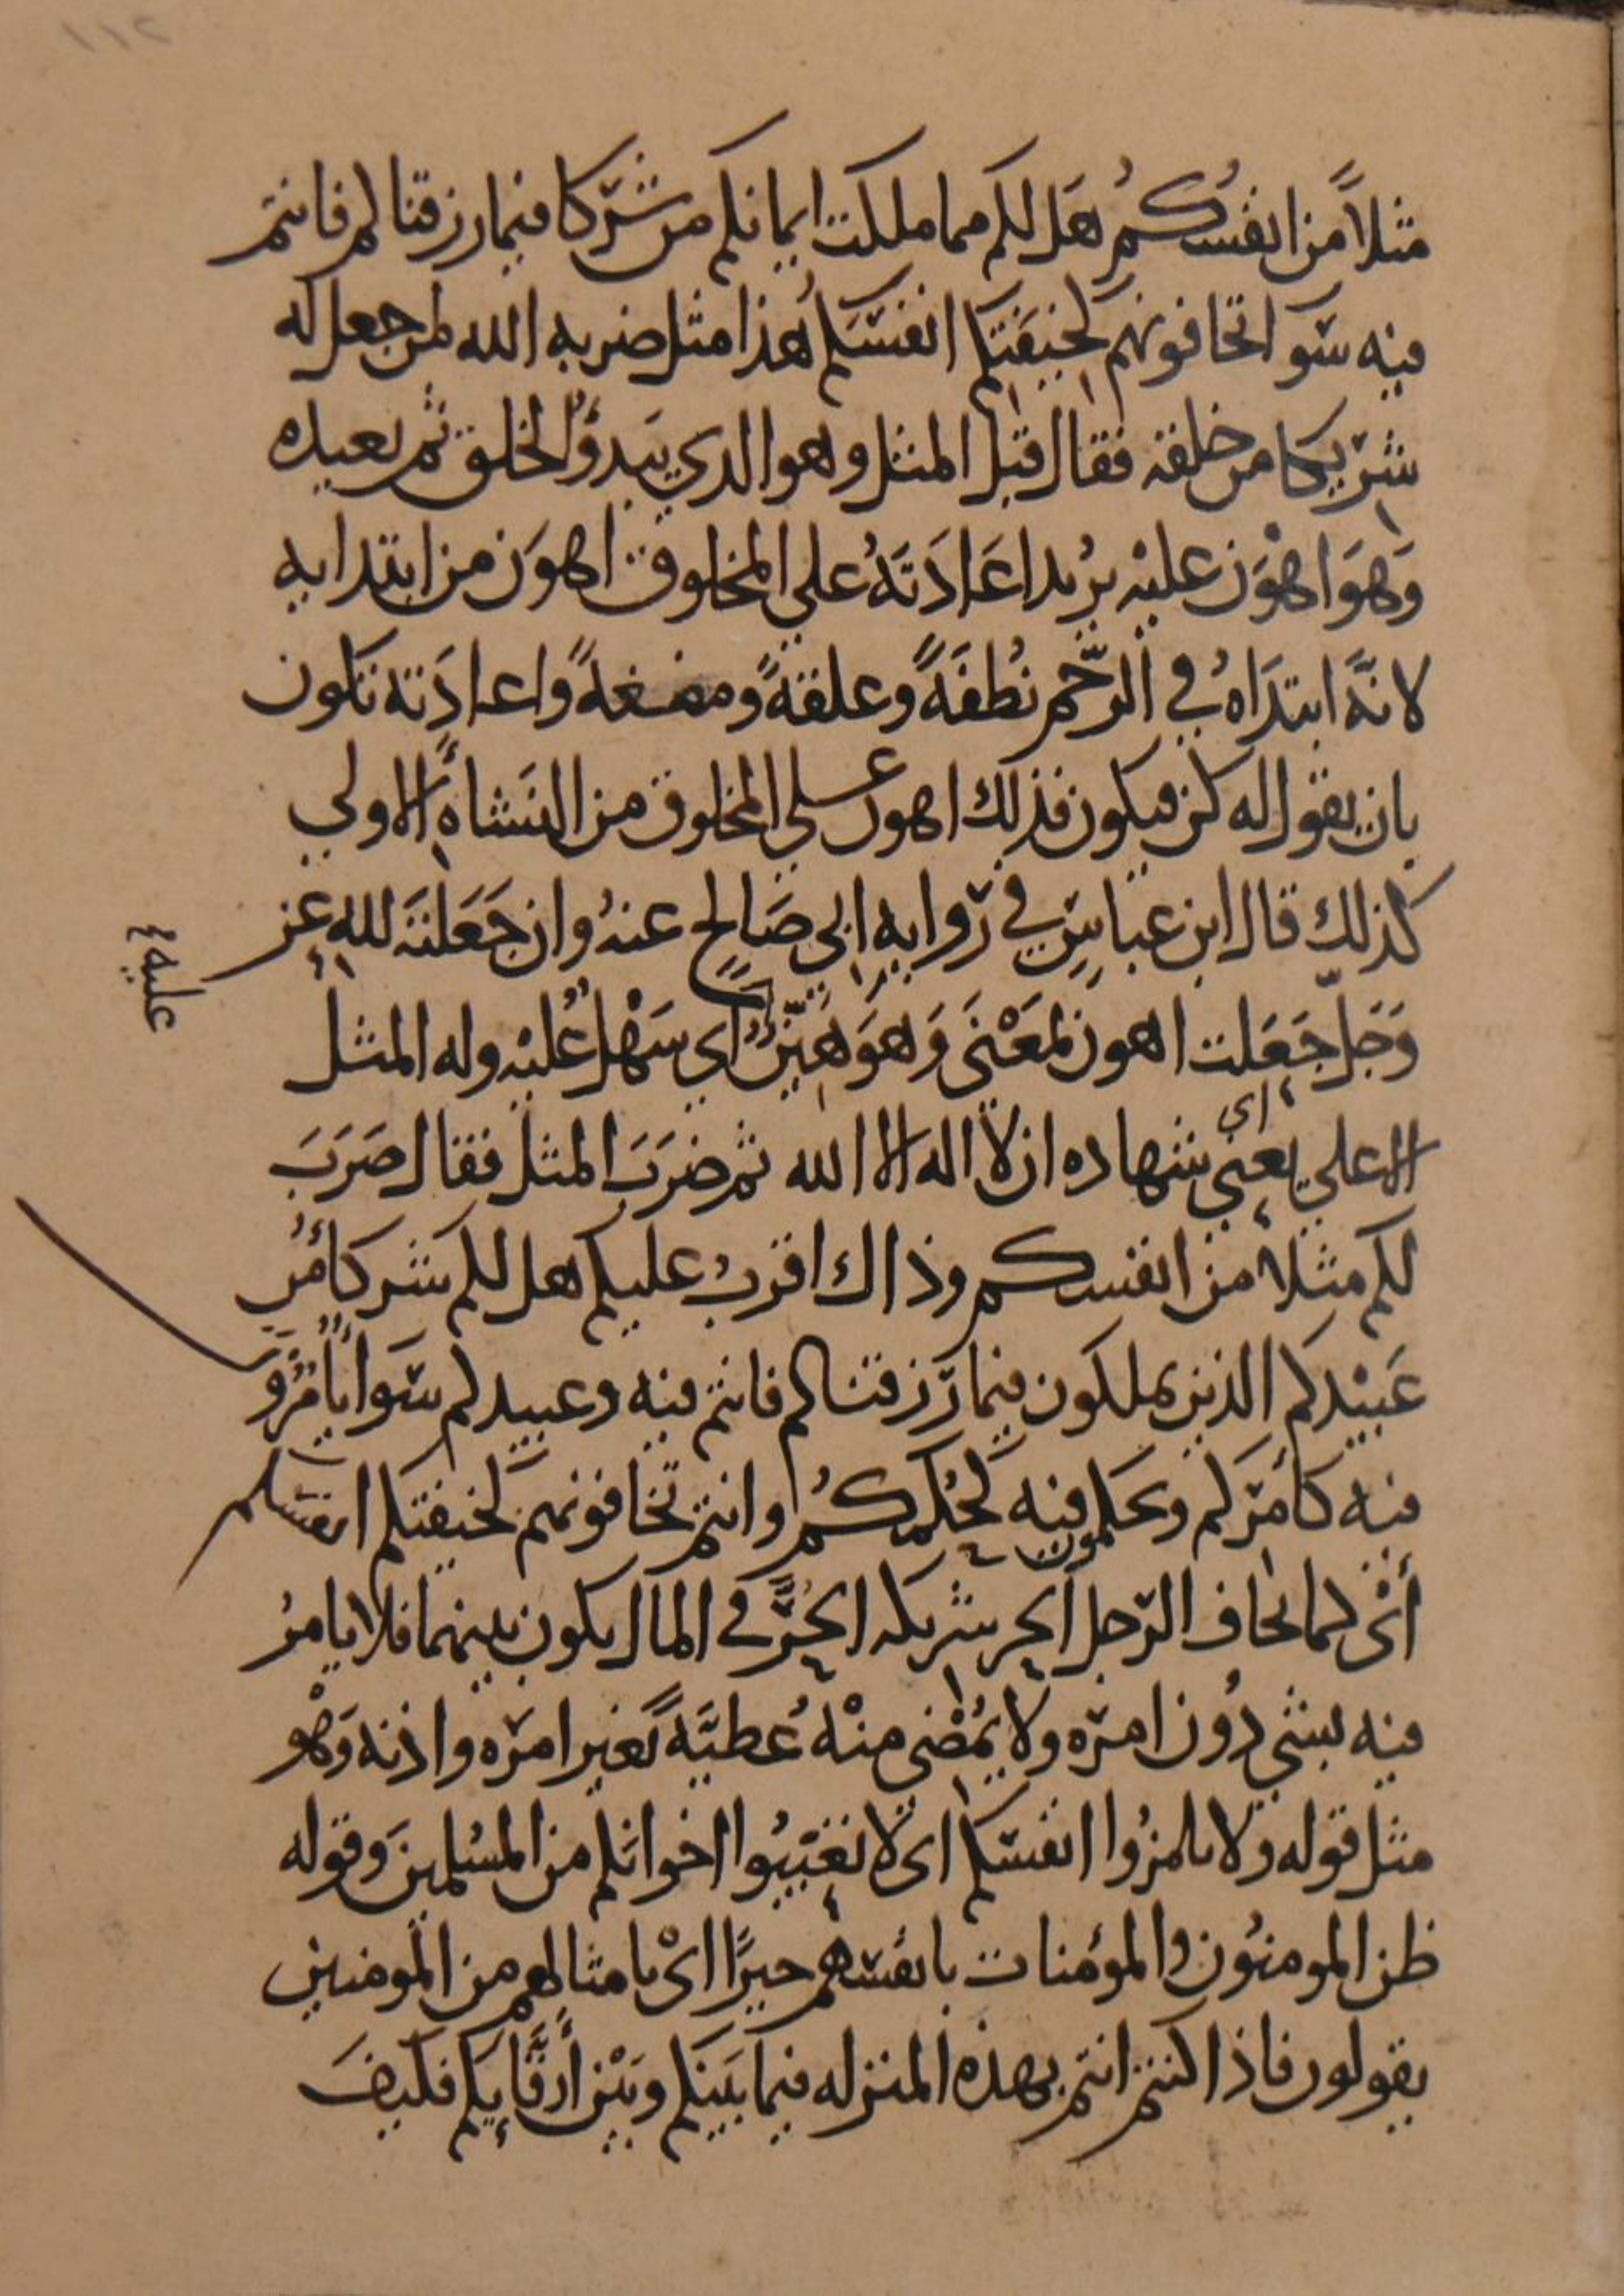 ١١٢
مثلاً من انفسُكُم هَل لكم مما ملكت ايمانكم من شرَكا فيما رزقنا لكم فانتم
فيه سَوا تخافونهم كخيفَتكم انفسَكم هذا مثل ضربه الله لمن جعل له
شريكا من خلقه فقال قبل المثل وهو الذي يَبدؤُا لخلق ثم يعيده
وَهوَ اهْوَن عليْه يرُيد اعَادَتَهُ علي المخلوق اهوَن من ابتدايه
لانَّهُ ابتدَاهُ في الرّحم نُطفَةً وعلقةً ومضغةً واعادَته تكون
بان يقول له كن فيكون فذلك اهون علي المخلوق من النَشأةِ الاولي
كذلك قال ابن عباس في روايه ابي صَالح عنهُ وان جَعَلتَه لله عز
وَجَلّ جَعَلت اهون بمَعْنَي وَهوَ هَيّنٌ اي سَهْلٌ عليْه وله المثل
عليه
الاعلي يعني اي شهاده ان لا اله الا الله ثم ضرَبَ المثل فقال ضرَبَ
لكم مثلا من انفسكم وذاك اقربُ عليكم هل لكم شركاءُ من
عَبيْدكم الذين يملكون فيما رَزقنا كم فانتم فيه وعبيدكم سَوا يأمُرُونَ
فيه كأمرَكم ويحكمون فيه كَحُكمكُم وانتم تخافونهم كخيفتكم انفسَكم
أيْ كما يخاف الرّجل الحر شريكه الحُرَّ في المال يكون بينهما فلا يامرُ
فيه بشي دُون امرَه ولا يُمْضي منْهُ عُطيَّةً بغير امرَه واذنه وَهْو
مثل قوله ولا تلمزُوا انفسَكم اي لا تعَيبُوا اخوانَكم من المسُلمينَ وقوله
ظن المومنوُن والمؤمنات بانفسَهم خيرًا ايْ بامثالهم من المومنين
يقولون فاذا كنتم انتم بهذه المنزله فيما بَينَكم وبَيْن أرقَّايكم فكيفَ